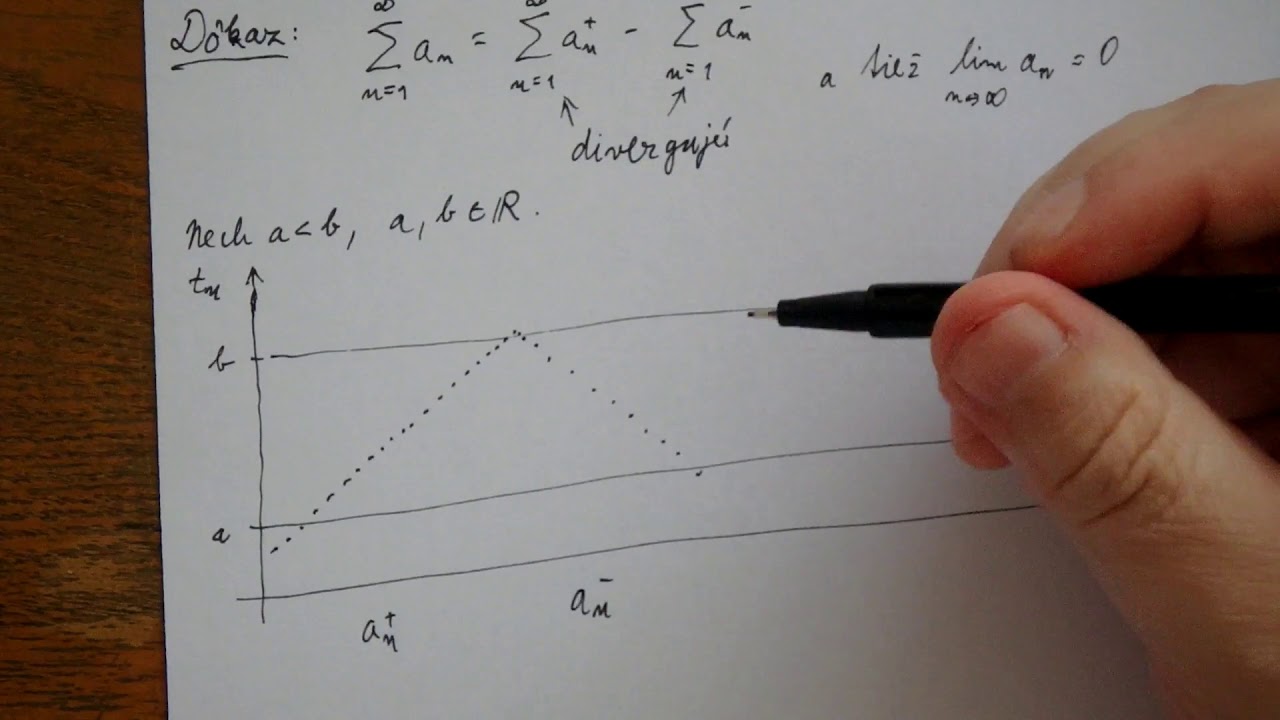 Dôkaz: ∞∑n=1 an = ∞∑n=1 an⁺ - ∑n=1 an⁻ a tiež lim n→∞ an = 0
divergujú
Nech a < b, a, b ∈ ℝ.
tn
b
a
an⁺ an⁻